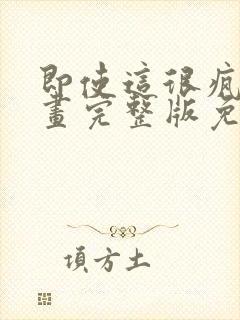 即使這很瘋
畫完整版免
項方土